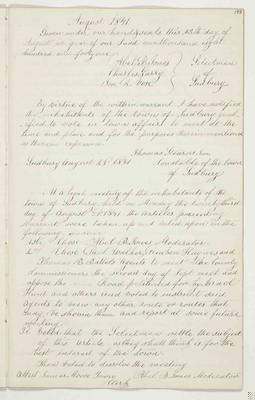 August 1841
Given under our hands & seals this 13th day of
August in year of our Lord one thousand eight
hundred and forty one.
Abel B. Jones } Selectmen
Charles Parry } of
} Sudbury
By virtue of the within warrant I have notified
the inhabitants of the town of Sudbury qual-
ified to vote in town affairs to meet at the
time and place and for the purposes therein mentioned
as therein expressed.
Thomas
Sudbury August 1841 Constable of the town
of Sudbury
At a legal meeting of the inhabitants of the
town of Sudbury held on Monday the twenty third
day of August AD 1841 the articles
warrant were taken up and acted upon in the
following manner
1st Chose Abel B. Jones Moderator.
2d Chose and
Thomas Agents to meet the County
Commissioners the second day of Sept next and
oppose the Road petitioned for by Israel
Hunt and others and voted to instruct said
Agents to view any other route or routes that
may be shown them and report at some future
meeting.
3d Voted that the Selectmen settle the subject
of this article as they shall think is for the
best interest of the town.
Then voted to dissolve the meeting
Attest James Moore Town Abel B. Jones Moderator
Clerk